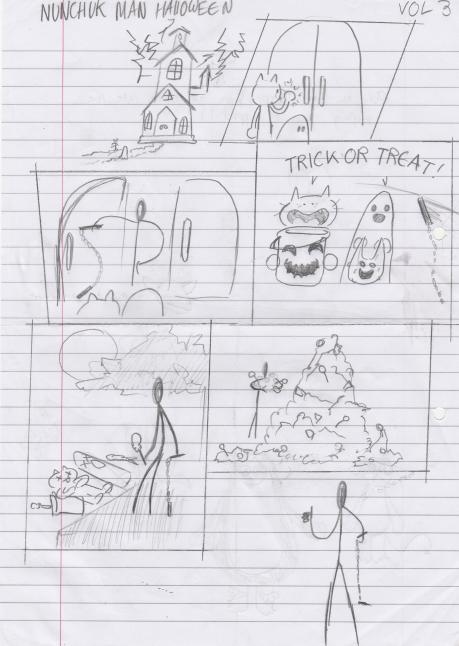 NUNCHUK MAN HALLOWEEN
VOL 3
TRICK OR TREAT!